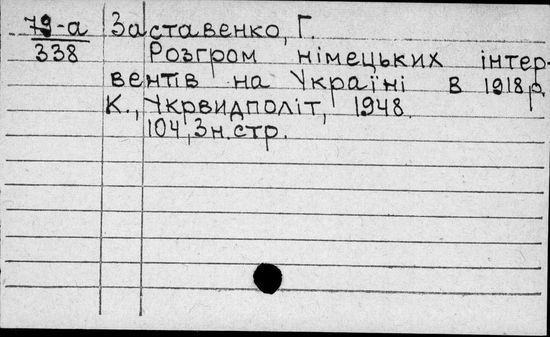 79-а Заставенко, Г.
338 Розгром німецьких інтер-
вентів на Україні в 1918 р.
К., Укрвидполіт, 1948.
104, 3 н. стр.